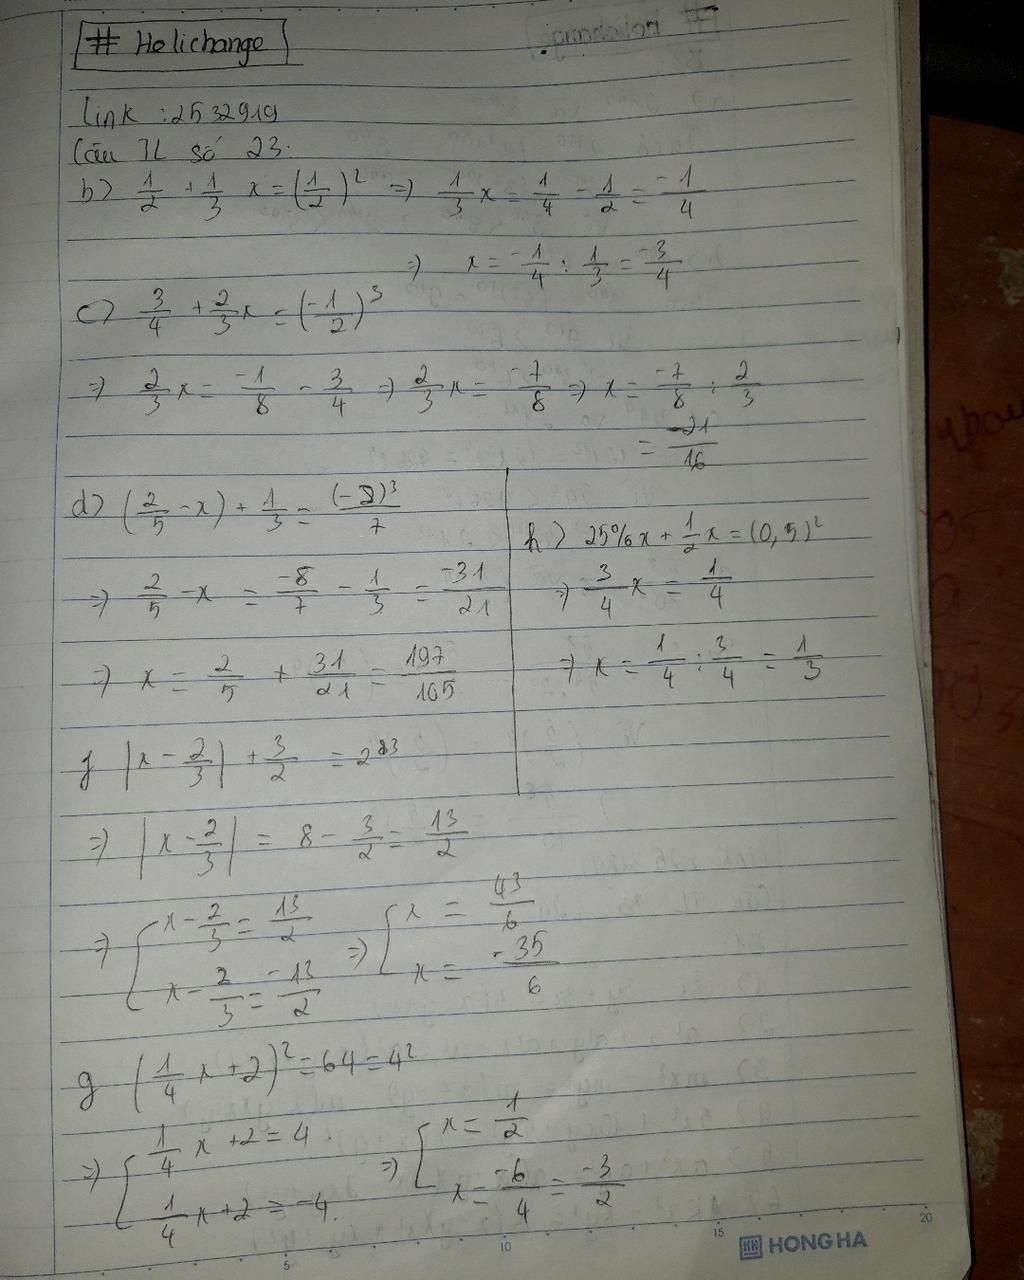 # Helichange
link : 2532919
Câu TL số 23.
b) 1/2 + 1/3 x = (1/2)² => 1/3 x = 1/4 - 1/2 = -1/4
=> x = -1/4 : 1/3 = -3/4
c) 3/4 + 2/3 x = (-1/2)³
=> 2/3 x = -1/8 - 3/4 => 2/3 x = -7/8 => x = -7/8 : 2/3
= -21/16
d) (2/5 - x) + 1/3 = (-2)³/7
=> 2/5 - x = -8/7 - 1/3 = -31/21
=> x = 2/5 + 31/21 = 197/105
h) 25% x + 1/2 x = (0,5)²
=> 3/4 x = 1/4
=> x = 1/4 : 3/4 = 1/3
f |x - 2/3| + 3/2 = 2³
=> |x - 2/3| = 8 - 3/2 = 13/2
=> [ x - 2/3 = 13/2 => [ x = 43/6
x - 2/3 = -13/2 x = -35/6
g (1/4 x + 2)² = 64 = 4²
=> [ 1/4 x + 2 = 4. => [ x = 1/2
1/4 x + 2 = -4. x = -6/4 = -3/2
5 10 15 20
HONG HA